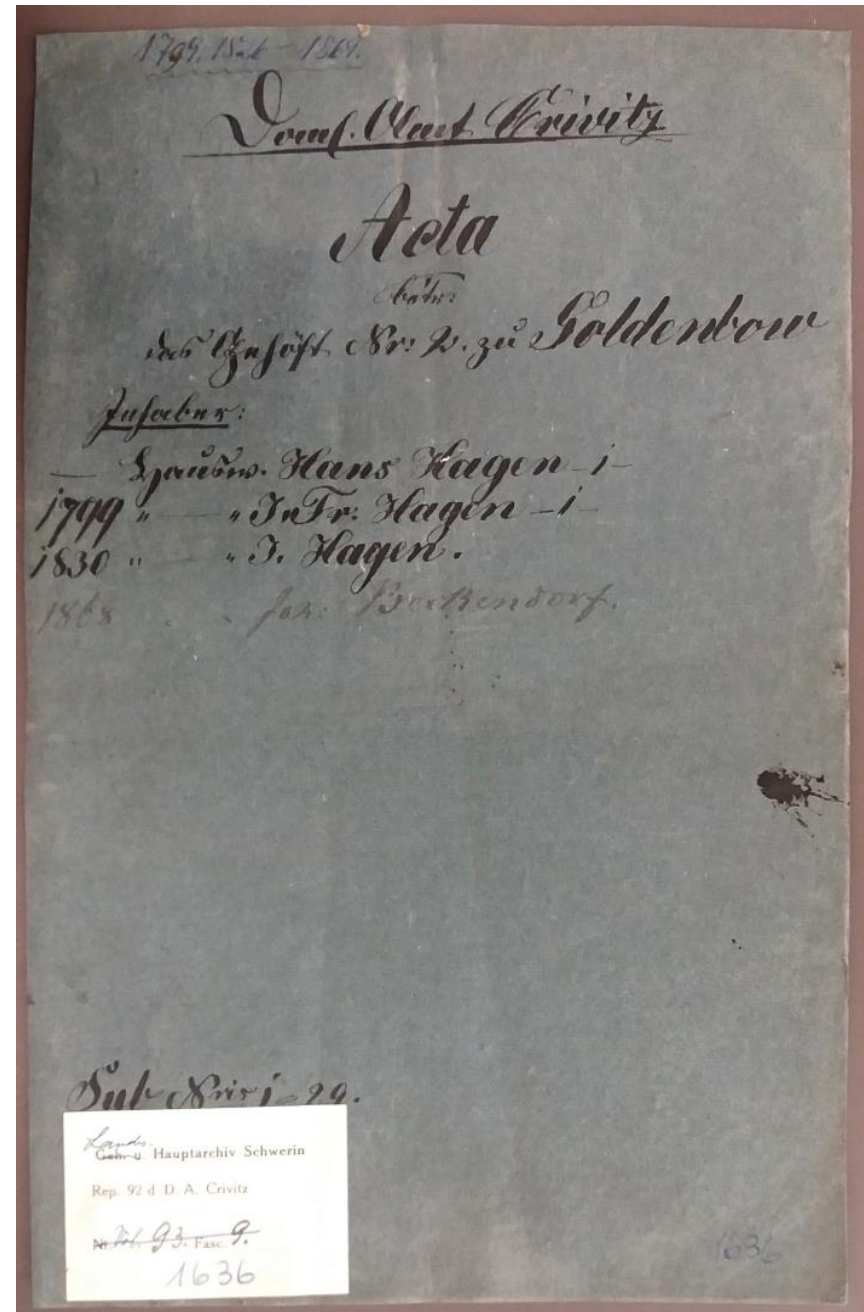 1799. 1826 - 1869.
Doml. Amt Crivitz
Acta
betr:
das Gehöft Nr: 2. zu Goldenbow
Inhaber:
— Hausw. Hans Hagen -i-
1799 " — " J. Fr: Hagen -i-
1830 " — " J. Hagen.
1868 " " Joh: Beckendorf.
Sub Nris 1-29.
Landes-
Geh. u. Hauptarchiv Schwerin
Rep. 92 d D. A. Crivitz
Nr. Vol. 93. Fasc. 9.
1636
1636